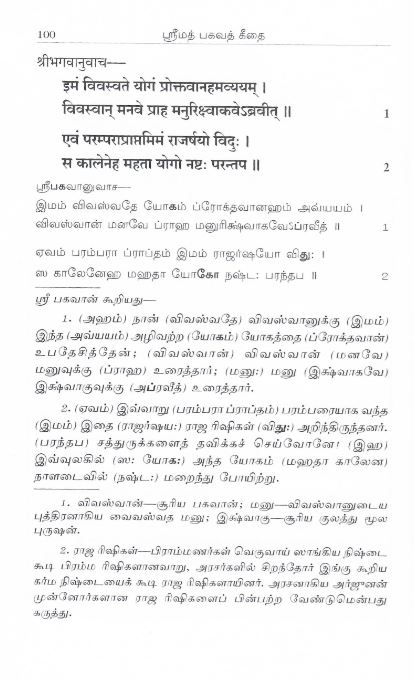 100 ஸ்ரீமத் பகவத் கீதை
श्रीभगवानुवाच—
इमं विवस्वते योगं प्रोक्तवानहमव्ययम् ।
विवस्वान् मनवे प्राह मनुरिक्ष्वाकवेऽब्रवीत् ॥ 1
एवं परम्पराप्राप्तमिमं राजर्षयो विदुः ।
स कालेनेह महता योगो नष्टः परन्तप ॥ 2
ஸ்ரீபகவானுவாச—
இமம் விவஸ்வதே யோகம் ப்ரோக்தவானஹம் அவ்யயம் ।
விவஸ்வான் மனவே ப்ராஹ மனுரிக்ஷ்வாகவேऽப்ரவீத் ॥ 1
ஏவம் பரம்பரா ப்ராப்தம் இமம் ராஜர்ஷயோ விது: ।
ஸ காலேனேஹ மஹதா யோகோ நஷ்ட: பரந்தப ॥ 2
ஸ்ரீ பகவான் கூறியது—
1. (அஹம்) நான் (விவஸ்வதே) விவஸ்வானுக்கு (இமம்)
இந்த (அவ்யயம்) அழிவற்ற (யோகம்) யோகத்தை (ப்ரோக்தவான்)
உபதேசித்தேன்; (விவஸ்வான்) விவஸ்வான் (மனவே)
மனுவுக்கு (ப்ராஹ) உரைத்தார்; (மனு:) மனு (இக்ஷ்வாகவே)
இக்ஷ்வாகுவுக்கு (அப்ரவீத்) உரைத்தார்.
2. (ஏவம்) இவ்வாறு (பரம்பரா ப்ராப்தம்) பரம்பரையாக வந்த
(இமம்) இதை (ராஜர்ஷய:) ராஜ ரிஷிகள் (விது:) அறிந்திருந்தனர்.
(பரந்தப) சத்துருக்களைத் தவிக்கச் செய்வோனே! (இஹ)
இவ்வுலகில் (ஸ: யோக:) அந்த யோகம் (மஹதா காலேன)
நாளடைவில் (நஷ்ட:) மறைந்து போயிற்று.
1. விவஸ்வான்—சூரிய பகவான்; மனு—விவஸ்வானுடைய
புத்திரனாகிய வைவஸ்வத மனு; இக்ஷ்வாகு—சூரிய குலத்து மூல
புருஷன்.
2. ராஜ ரிஷிகள்—பிராம்மணர்கள் வெகுவாய் ஸாங்கிய நிஷ்டை
கூடி பிரம்ம ரிஷிகளானவாறு, அரசர்களில் சிறந்தோர் இங்கு கூறிய
கர்ம நிஷ்டையைக் கூடி ராஜ ரிஷிகளாயினர். அரசனாகிய அர்ஜுனன்
முன்னோர்களான ராஜ ரிஷிகளைப் பின்பற்ற வேண்டுமென்பது
கருத்து.